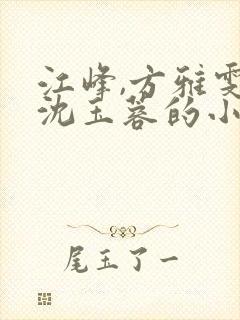 江峰,方雅雯
沈玉蓉的小
尾玉了一